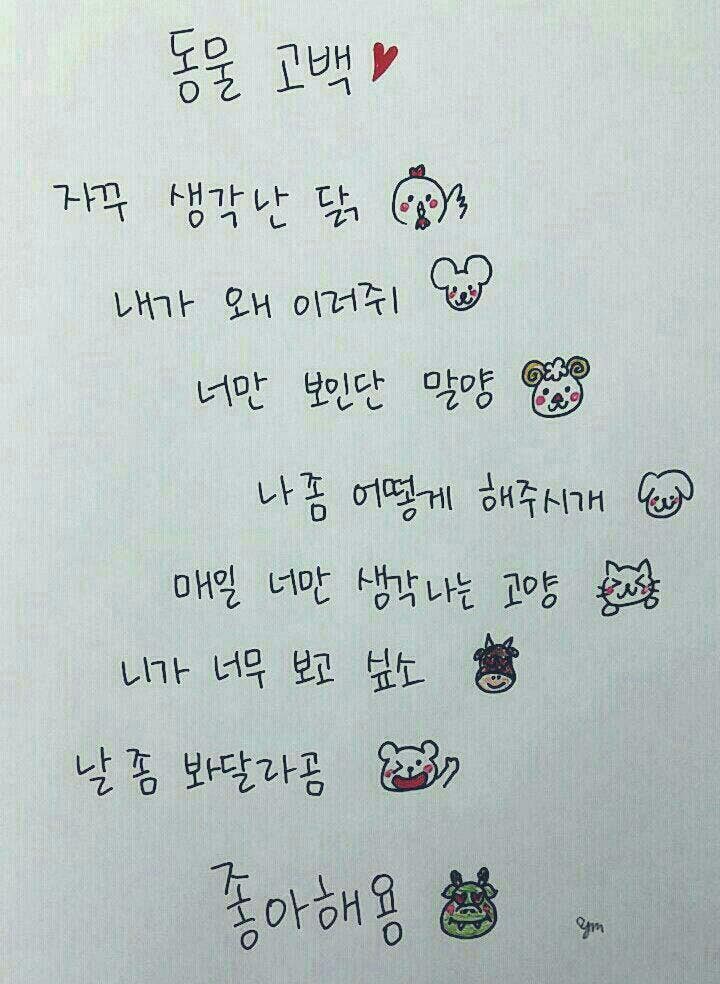 동물 고백
자꾸 생각난 닭
내가 왜 이러쥐
너만 보인단 말양
나 좀 어떻게 해주시개
매일 너만 생각나는 고양
니가 너무 보고 싶소
날 좀 봐달라곰
좋아해용
ym